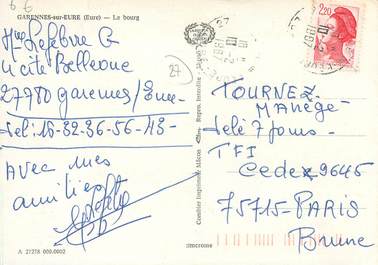 6 6
GARENNES-sur-EURE (Eure) — Le bourg
Mme Lefebvre G
4 cité Bellevue
27780 Garennes/Eure
Tel: 16-32-36-56-43-
Avec mes
amitiés
A 27278 000.0002
27
Combier Imprimeur Mâcon
2,20
10-2
1987
TOURNEZ-
Manège-
Télé 7 Jours-
TFI
Cedex 9645
75715-PARIS
Brune